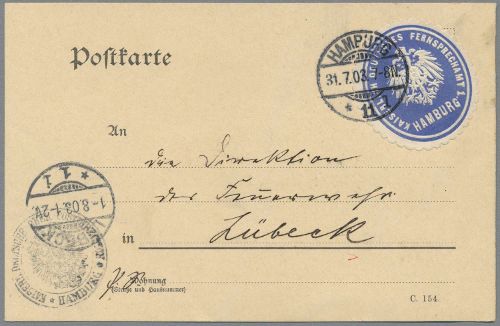 Postkarte
HAMBURG
31.7.03. 8-9N.
* 11 *
KAISERLICH DEUTSCHES FERNSPRECHAMT 1.
HAMBURG
An
die Direktion
der Feuerwehr
in Lübeck
* 1 1
1-8.03.1-2V.
HAMBURG
Wohnung
(Straße und Hausnummer)
C. 154.